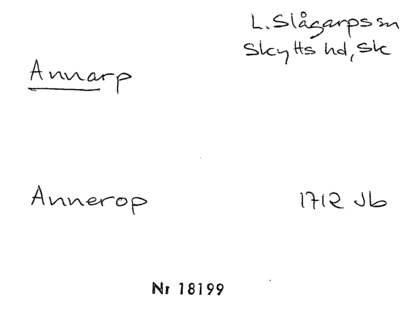 L. Slågarps sn
Skytts hd, Sk
Annarp
Annerop 1712 Jb
Nr 18199